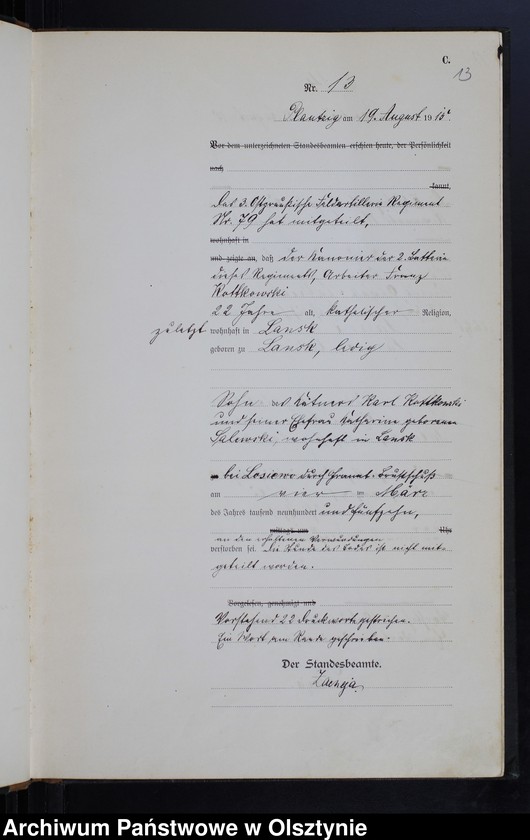 C.
13
Nr. 13
Plautzig am 19. August 1915
Vor dem unterzeichneten Standesbeamten erschien heute, der Persönlichkeit
nach
kannt,
Das 3. Ostpreußische Feldartillerie Regiment
Nr. 79 hat mitgeteilt,
wohnhaft in
und zeigte an, daß der Kanonier der 2. Batterie
dieses Regiments, Arbeiter Franz
Kottkowski
22 Jahre alt, katholischer Religion,
zuletzt wohnhaft in Lansk
geboren zu Lansk, ledig
Sohn des Kätners Karl Kottkowski
und seiner Ehefrau Katharina geborenen
Salewski, wohnhaft in Lansk
bei Losiewo durch Granat-Brustschuß
am vier März
des Jahres tausend neunhundert und fünfzehn,
Uhr
an den erhaltenen Verwundungen
verstorben sei. Die Stunde des Todes ist nicht mit-
geteilt worden.
Vorgelesen, genehmigt und
Vorstehend 22 Druckworte gestrichen.
Ein Wort am Rande geschrieben.
Der Standesbeamte.
Archiwum Państwowe w Olsztynie